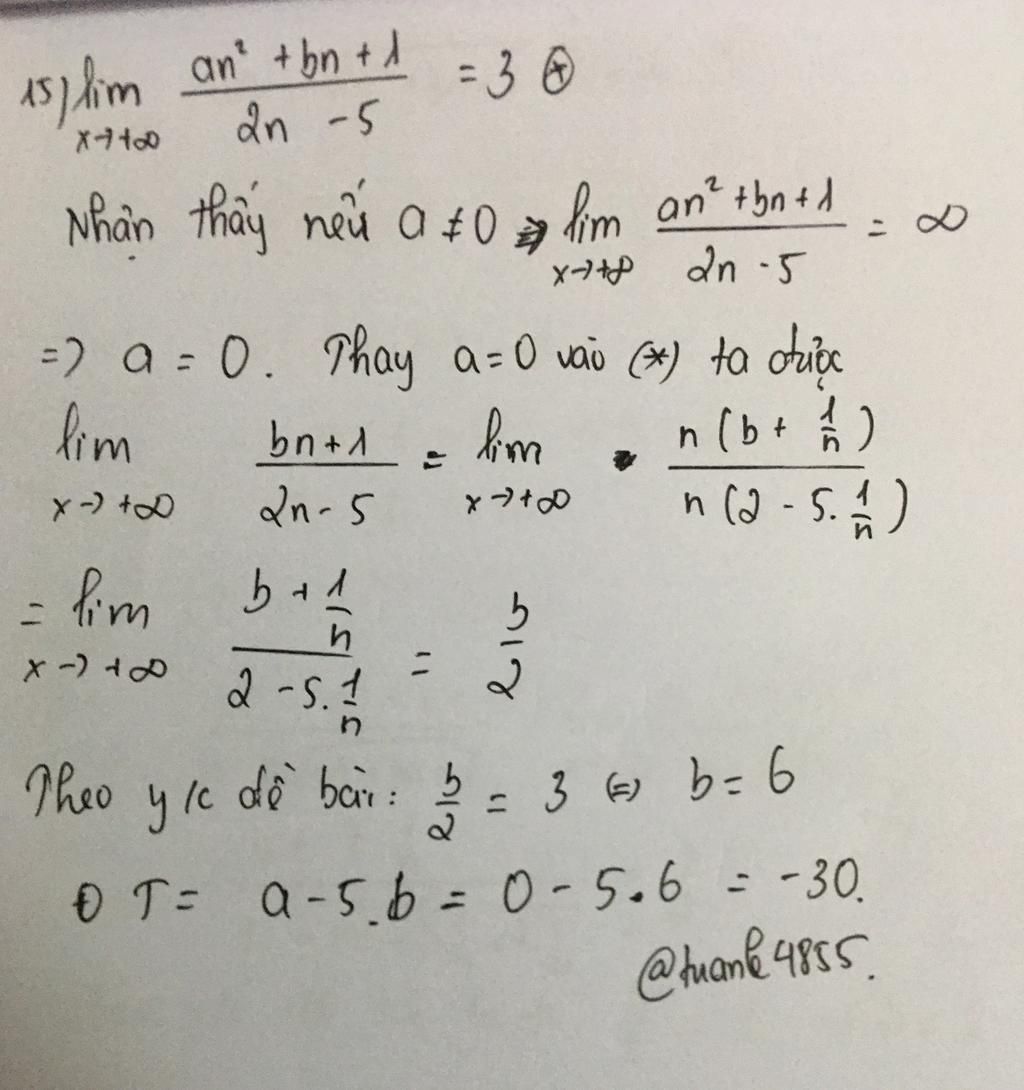 15) lim x→+∞ (an² + bn + 1)/(2n - 5) = 3 ⊛
Nhận thấy nếu a ≠ 0 ⇒ lim x→+∞ (an² + bn + 1)/(2n - 5) = ∞
=> a = 0. Thay a = 0 vào (*) ta được
lim x→+∞ (bn + 1)/(2n - 5) = lim x→+∞ n(b + 1/n)/n(2 - 5.1/n)
= lim x→+∞ (b + 1/n)/(2 - 5.1/n) = b/2
Theo y/c đề bài: b/2 = 3 (=) b = 6
T = a - 5.b = 0 - 5.6 = -30.
@tuanle4855.